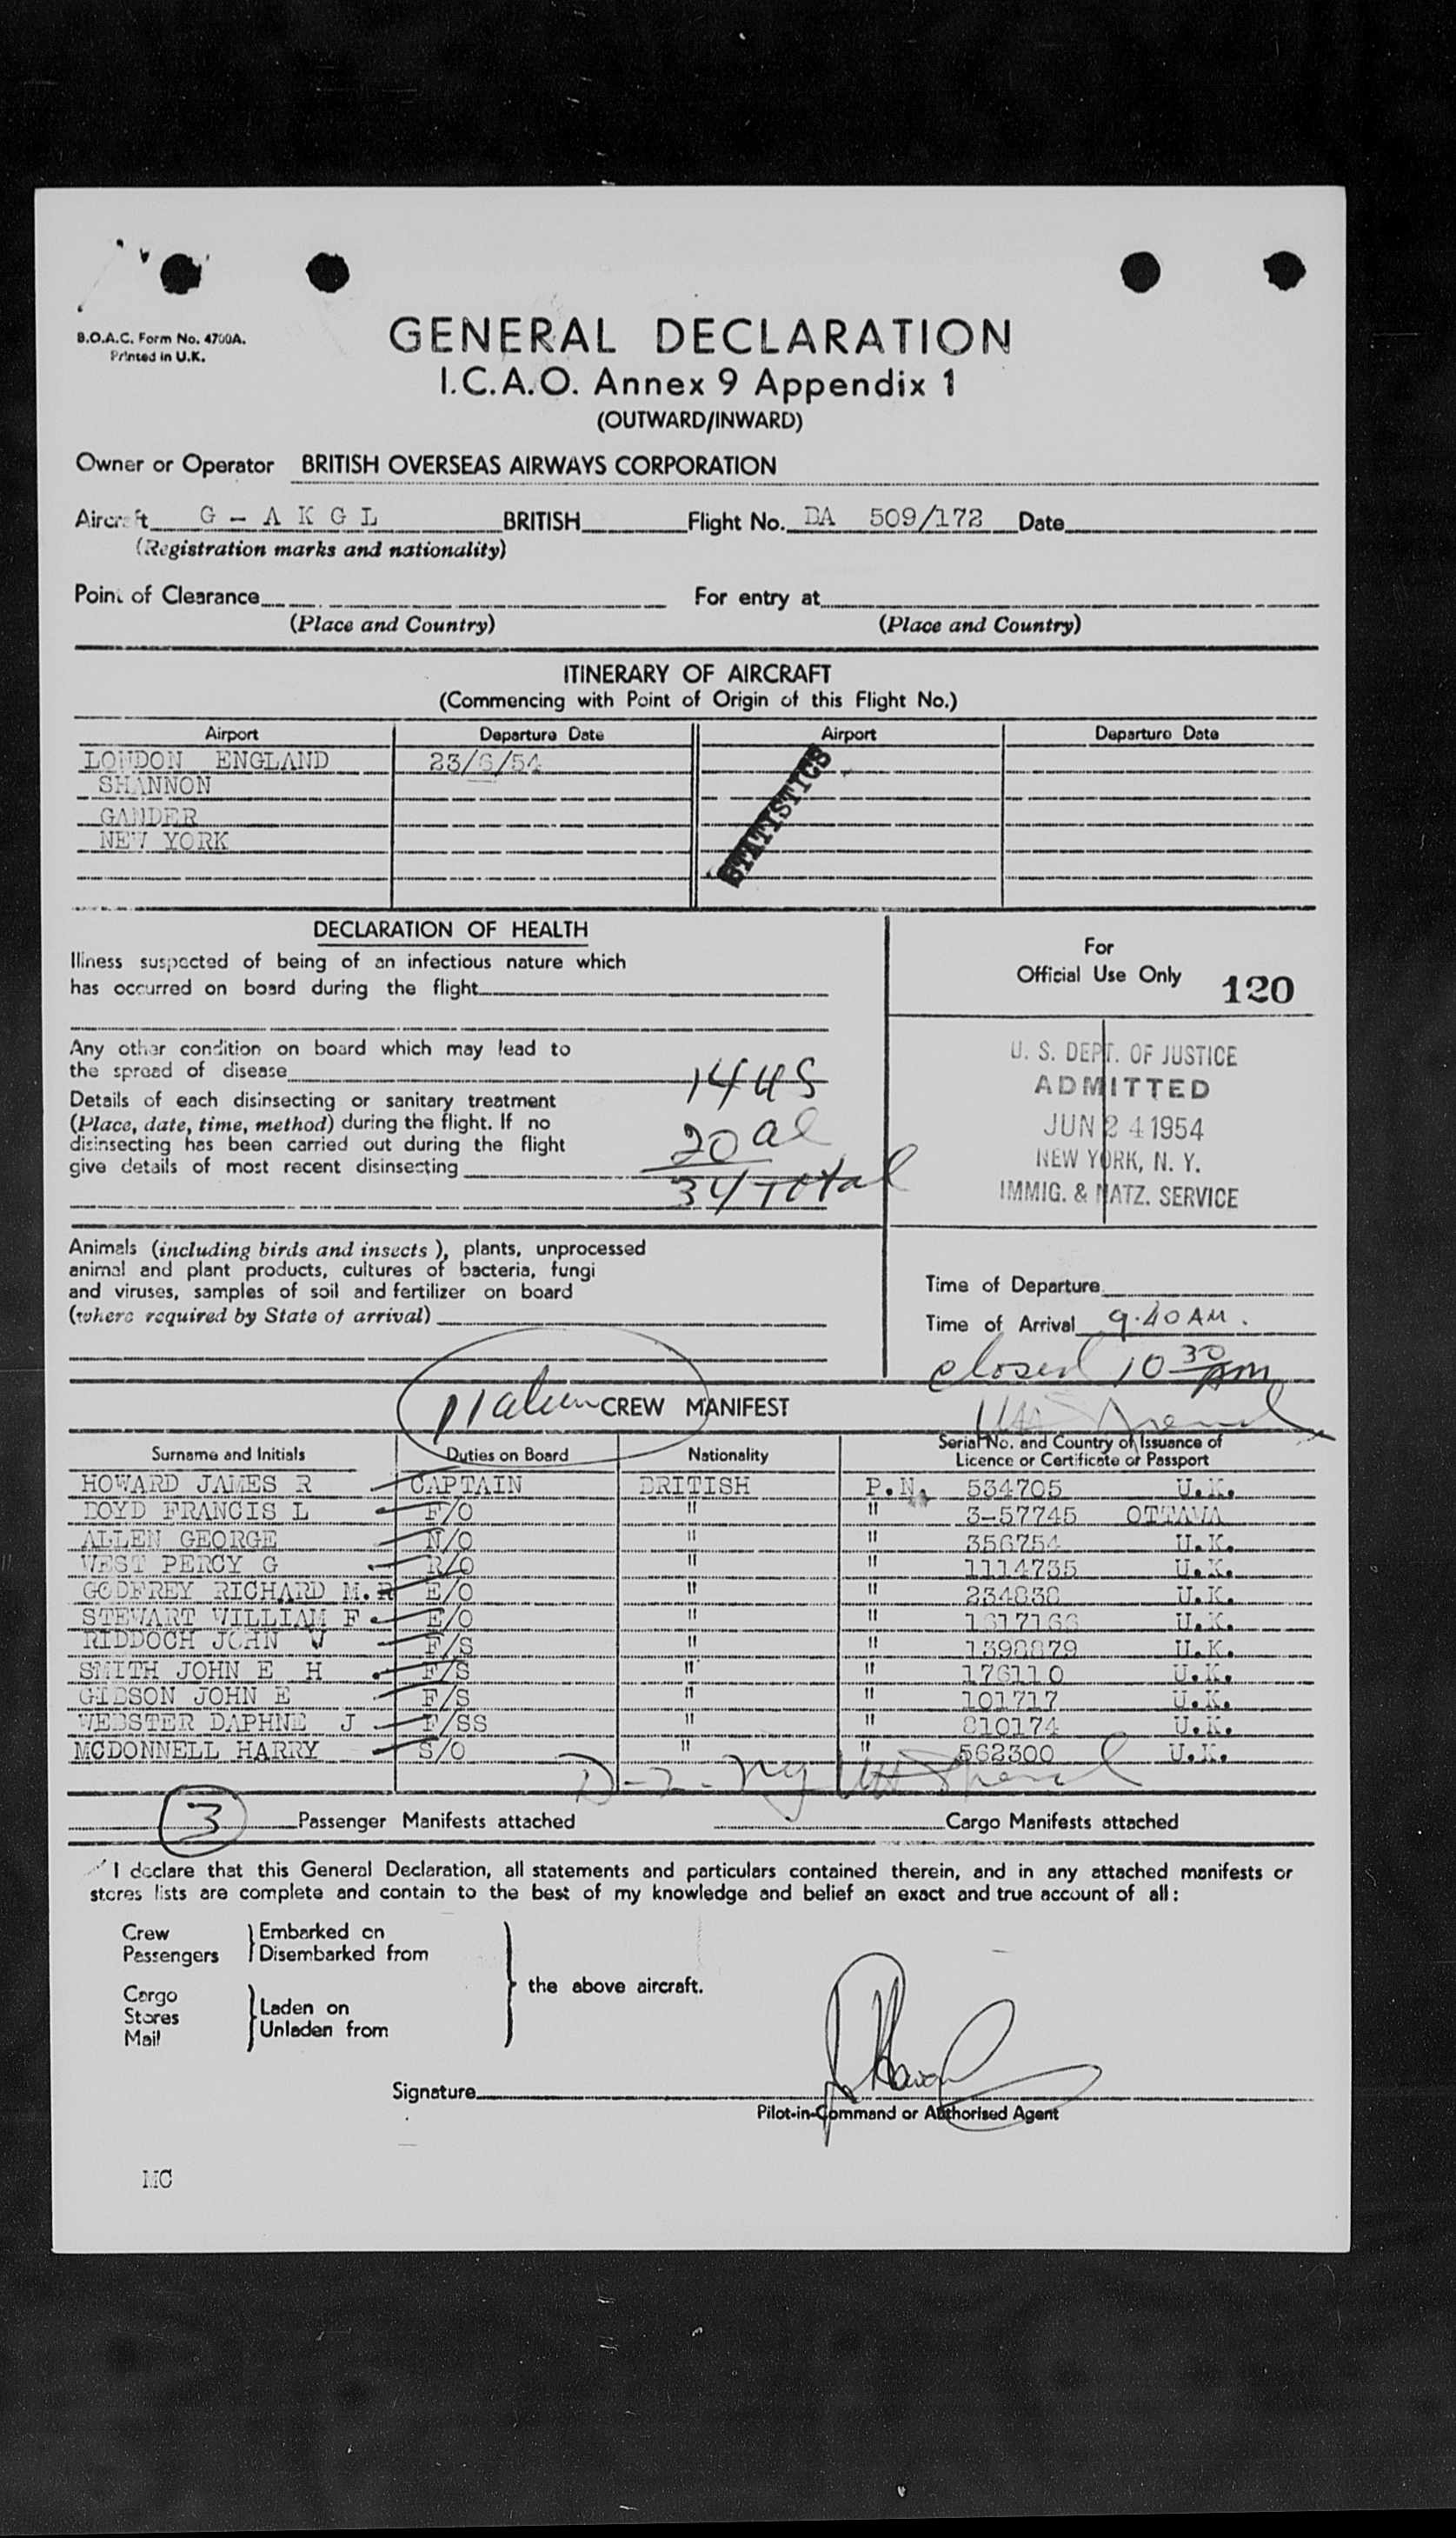 B.O.A.C. Form No. 4700A.
Printed in U.K.
GENERAL DECLARATION
I.C.A.O. Annex 9 Appendix 1
(OUTWARD/INWARD)
Owner or Operator BRITISH OVERSEAS AIRWAYS CORPORATION
Aircraft G - A K G L BRITISH Flight No. BA 509/172 Date
(Registration marks and nationality)
Point of Clearance For entry at
(Place and Country) (Place and Country)
ITINERARY OF AIRCRAFT
(Commencing with Point of Origin of this Flight No.)
Airport Departure Date Airport Departure Date
LONDON ENGLAND 23/6/54
SHANNON
GANDER
NEW YORK
STATISTICS
DECLARATION OF HEALTH
Illness suspected of being of an infectious nature which
has occurred on board during the flight
Any other condition on board which may lead to
the spread of disease
Details of each disinsecting or sanitary treatment
(Place, date, time, method) during the flight. If no
disinsecting has been carried out during the flight
give details of most recent disinsecting
14 US
20 al
34 Total
Animals (including birds and insects), plants, unprocessed
animal and plant products, cultures of bacteria, fungi
and viruses, samples of soil and fertilizer on board
(where required by State of arrival)
For
Official Use Only 120
U. S. DEPT. OF JUSTICE
ADMITTED
JUN 24 1954
NEW YORK, N. Y.
IMMIG. & NATZ. SERVICE
Time of Departure
Time of Arrival 9.40 AM.
closed 10 30 AM
11 alien CREW MANIFEST
Surname and Initials Duties on Board Nationality Serial No. and Country of Issuance of
Licence or Certificate or Passport
HOWARD JAMES R CAPTAIN BRITISH P.N. 534705 U.K.
BOYD FRANCIS L F/O " " 3-57745 OTTAWA
ALLEN GEORGE N/O " " 356754 U.K.
WEST PERCY G R/O " " 1114735 U.K.
GODFREY RICHARD M.R E/O " " 234838 U.K.
STEWART WILLIAM F E/O " " 1617166 U.K.
RIDDOCH JOHN W F/S " " 1398879 U.K.
SMITH JOHN E H F/S " " 176110 U.K.
GIBSON JOHN E F/S " " 101717 U.K.
WEBSTER DAPHNE J F/SS " " 810174 U.K.
MCDONNELL HARRY S/O " " 562300 U.K.
3 Passenger Manifests attached Cargo Manifests attached
I declare that this General Declaration, all statements and particulars contained therein, and in any attached manifests or
stores lists are complete and contain to the best of my knowledge and belief an exact and true account of all:
Crew Embarked on
Passengers Disembarked from
the above aircraft.
Cargo
Stores Laden on
Mail Unladen from
Signature
Pilot-in-Command or Authorised Agent
MC